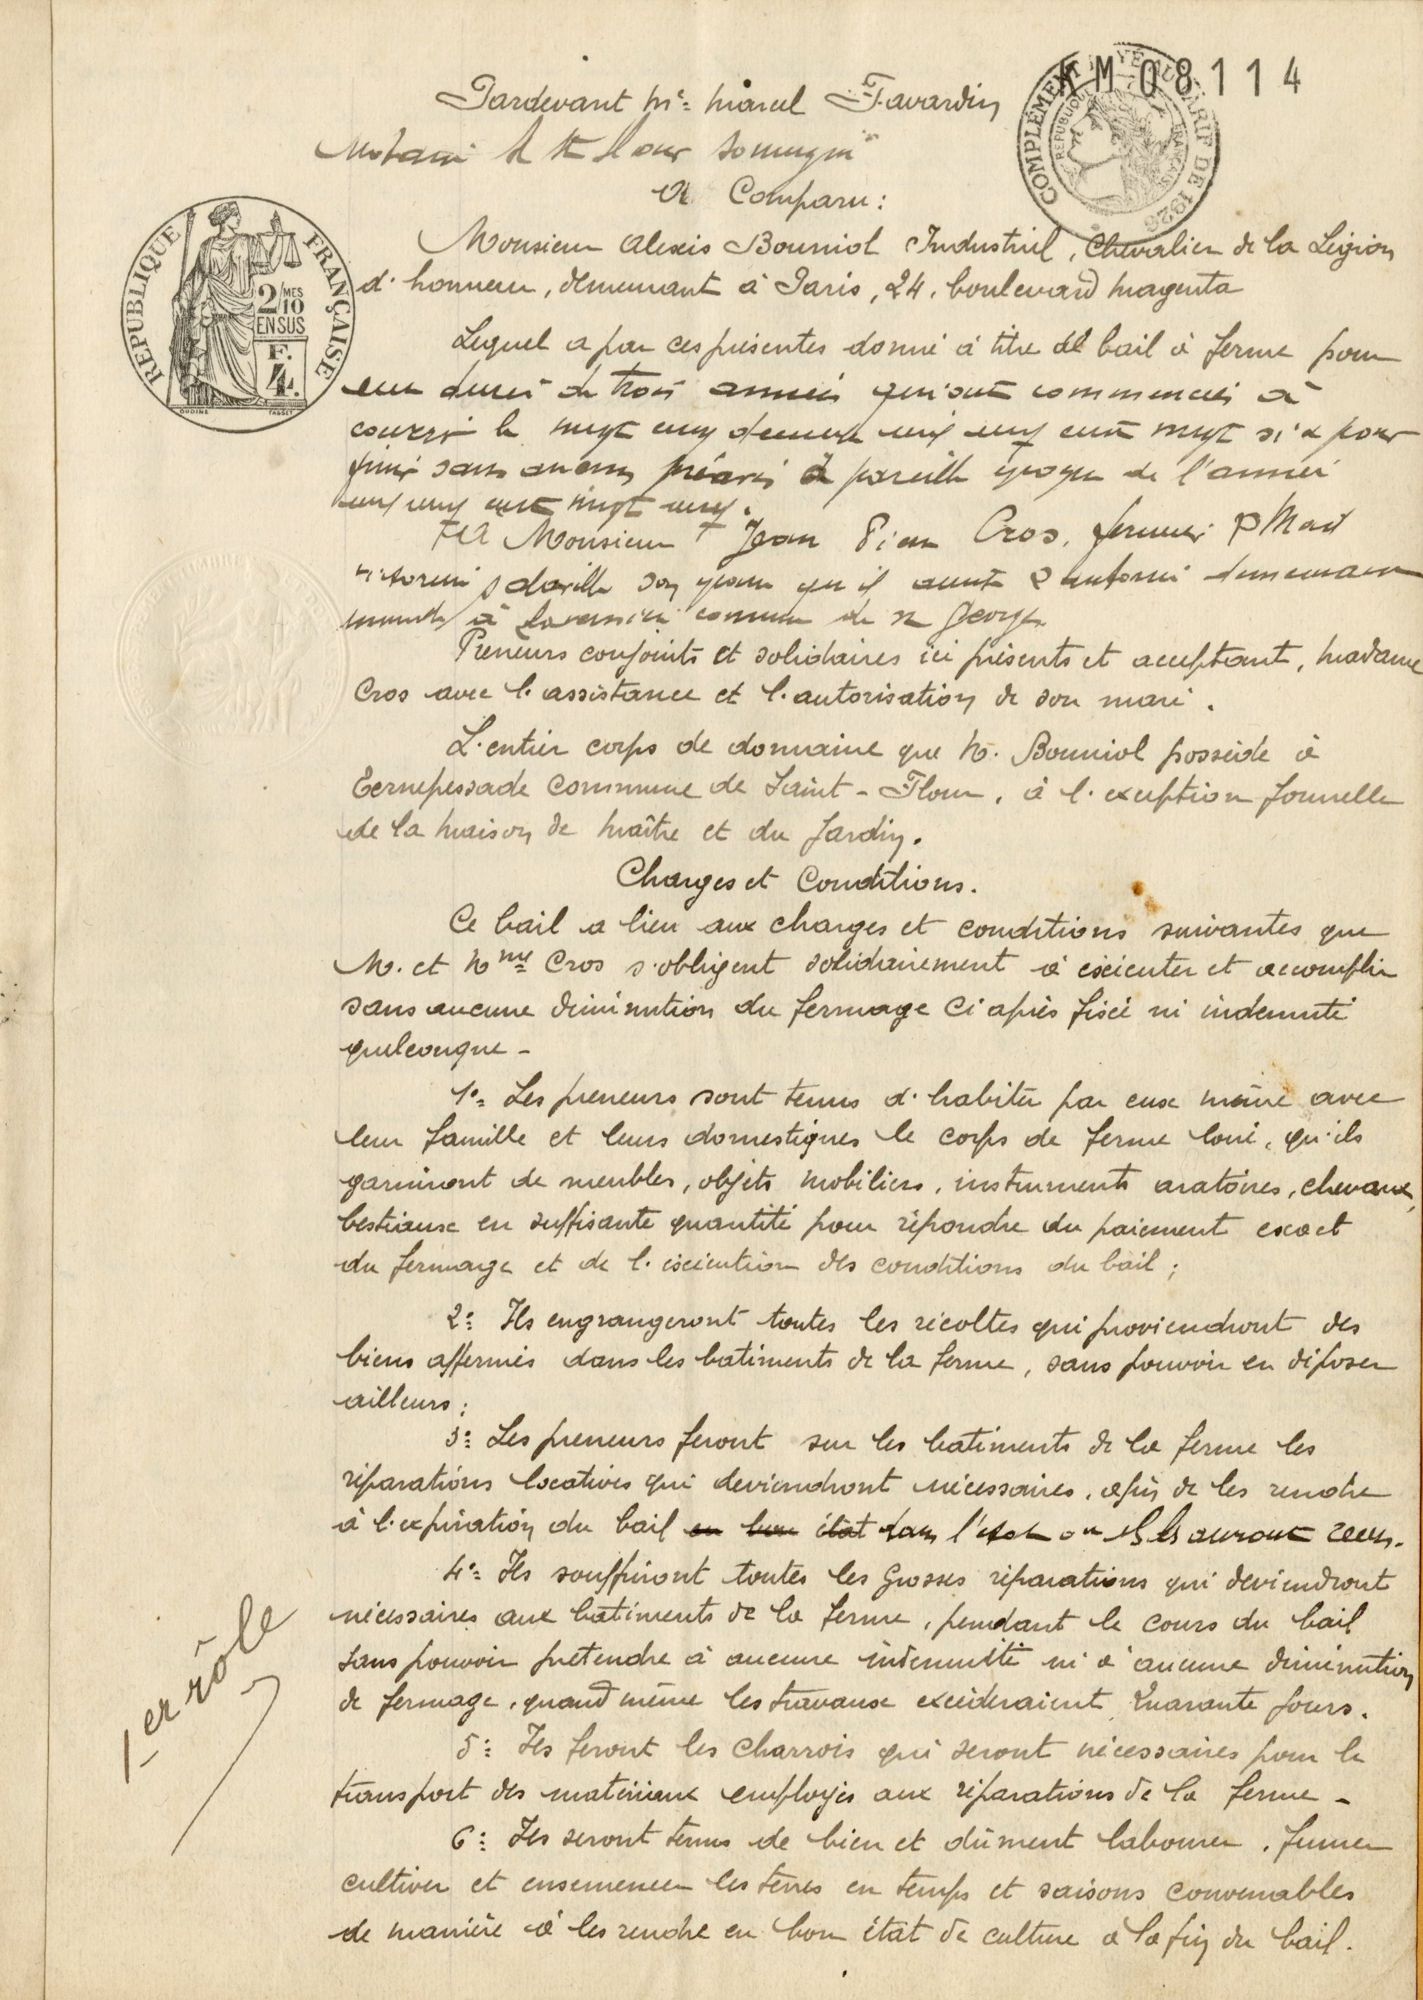 KM 08114
COMPLÉMENT PAYÉ AU TARIF DE 1926
RÉPUBLIQUE FRANÇAISE
Pardevant Me Marcel Tavardin
Notaire à St Flour soussigné
A Comparu :
Monsieur Alexis Bouniol Industriel, Chevalier de la Légion
d'honneur, demeurant à Paris, 24, boulevard Magenta
RÉPUBLIQUE FRANÇAISE
2/10 MES
EN SUS
F.
4.
OUDINÉ
TASSET
Lequel a par ces présentes donné à titre de bail à ferme pour
une durée de trois années qui ont commencé à
courir le vingt cinq décembre mil neuf cent vingt six pour
finir sans aucun préavis à pareille époque de l'année
mil neuf cent vingt neuf.
A Monsieur Jean Pierre Cros, fermier & Mad
son épouse qu'il assiste & autorise demeurant
ensemble à commune de St Georges
Preneurs conjoints et solidaires ici présents et acceptant, Madame
Cros avec l'assistance et l'autorisation de son mari.
L'entier corps de domaine que M. Bouniol possède à
Ternepessade commune de Saint-Flour, à l'exception formelle
de la maison de Maître et du Jardin.
Charges et Conditions.
Ce bail a lieu aux charges et conditions suivantes que
M. et Mme Cros s'obligent solidairement à exécuter et accomplir
sans aucune diminution du fermage ci après fixé ni indemnité
quelconque -
1°= Les preneurs sont tenus d'habiter par eux même avec
leur famille et leurs domestiques le corps de ferme loué, qu'ils
garniront de meubles, objets mobiliers, instruments aratoires, chevaux,
bestiaux en suffisante quantité pour répondre du paiement exact
du fermage et de l'exécution des conditions du bail ;
2°= Ils engrangeront toutes les récoltes qui proviendront des
biens affermés dans les batiments de la ferme, sans pouvoir en diposer
ailleurs ;
3°= Les preneurs feront sur les batiments de la ferme les
réparations locatives qui deviendront nécessaires, afin de les rendre
à l'expiration du bail en bon état dans l'état où ils les auront reçus.
4°= Ils souffriront toutes les Grosses réparations qui deviendront
nécessaires aux batiments de la ferme, pendant le cours du bail
sans pouvoir prétendre à aucune indemnité ni à aucune diminution
de fermage, quand même les travaux excéderaient Quarante Jours.
5°= Ils feront les charrois qui seront nécessaires pour le
transport des matériaux employés aux réparations de la ferme -
6°= Ils seront tenus de bien et dûment labourer, fumer
cultiver et ensemencer les terres en temps et saisons convenables
de manière à les rendre en bon état de culture à la fin du bail.
1er rôle